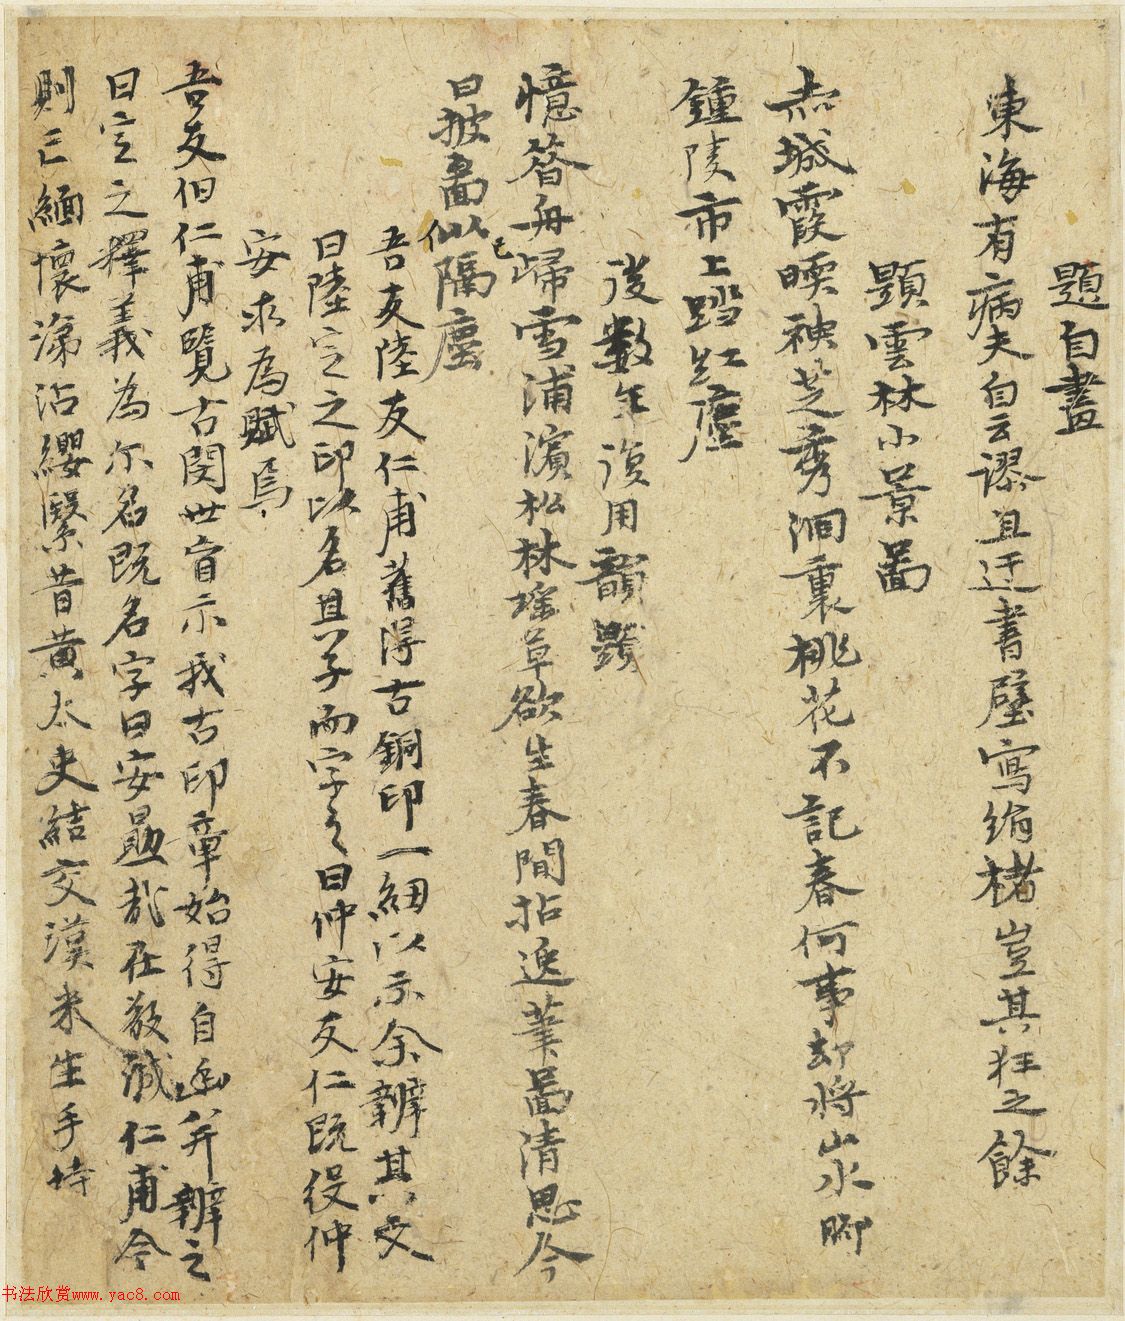 題自畫
東海有病夫自云謬且迂書壁寫絹楮豈其狂之餘
題雲林小景畵
赤城霞暎袂芝秀澗裏桃花不記春何事却將山水脚
鍾陵市上踏紅塵
後數年復用韻題
憶昔舟歸雪浦濱松林瑤草欲生春閒拈逸筆畵清思今
日披畵似已隔塵
吾友陸友仁甫舊得古銅印一紐以示余辨其文
曰陸定之印以名且子而字之曰仲安友仁既役仲
安求為賦焉
吾友伯仁甫覽古閔世盲示我古印章始得自幽并辨之
曰定之釋義為尔名既名字曰安勗哉在敬誠仁甫今
則亡緬懷涕沾纓繄昔黃太史結交漢米生手持
书法欣赏www.yac8.com